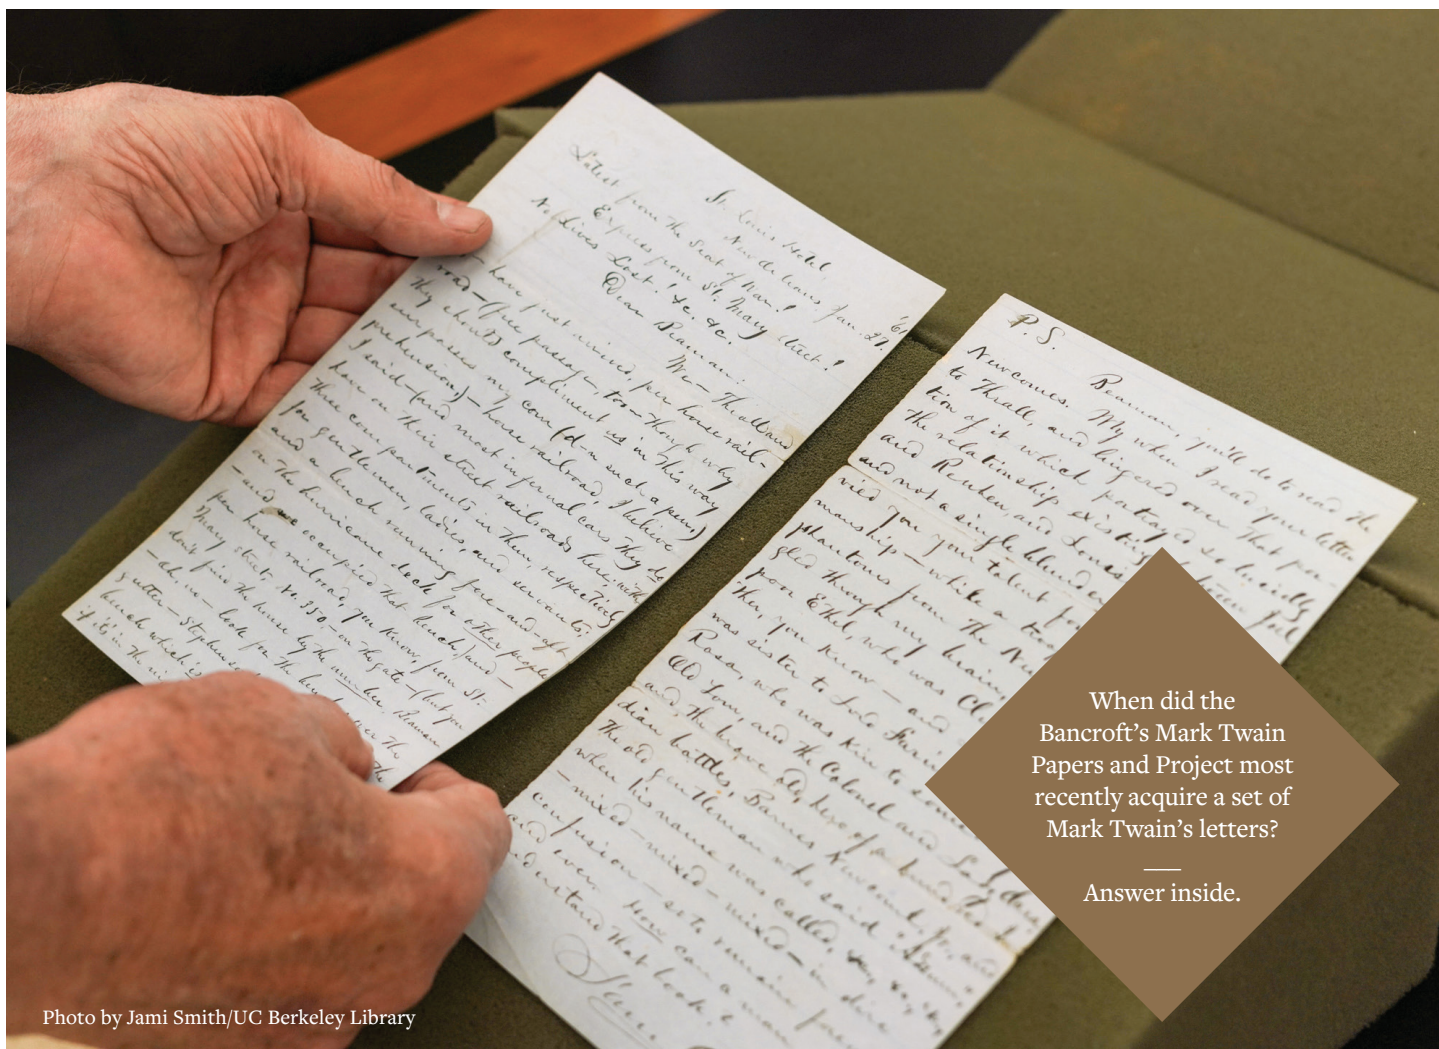 St. Louis Hotel
New Orleans, Jan. 27. '61
Latest from the Seat of War!
Express from St. Mary street!
No lives Lost! &c. &c.
Dear Beaman:
We — Thrall and
have just arrived, per horse rail-
road — (free passage, too — though why
they should compliment us in this way
surpasses my com (d—n such a pen)
prehension,) — horse railroad, I believe
I said — (and most infernal cars they do
have on their street railroads here; with
three compartments in them, respectively
for gentlemen, ladies, and servants;
and a bench running fore-and-aft
on the hurricane deck for other people
— and we occupied that bench,) and —
per horse railroad, you know, from St.
Mary street, No. 350 — on the gate — (but you
don't find the house by the number, Beaman
— oh, no — look for the
gutter —
bench which is
if it's in the
P.S.
Beaman, you'll do to read the
Newcomes. My when I read your letter
to Thrall, and lingered over that por-
tion of it which portrayed so lucidly
the relationship existing
and Reuben, and
and not a single blunder
vied you your talent for
manship — while a
phantoms from the
gled through my brain,
poor Ethel, who was
then, you know — and
was sister to
Rosa, who was kin to
Old Tom, and the Colonel and
and the brave old hero of a hundred
dian battles, Barnes Newcome, Jr., and
the old gentleman who said
when his name was called,
— mixed — mixed — mixed — in dire
confusion — so to remain
and ever. How can a man
understand that book?
Sam
When did the
Bancroft's Mark Twain
Papers and Project most
recently acquire a set of
Mark Twain's letters?
Answer inside.
Photo by Jami Smith/UC Berkeley Library